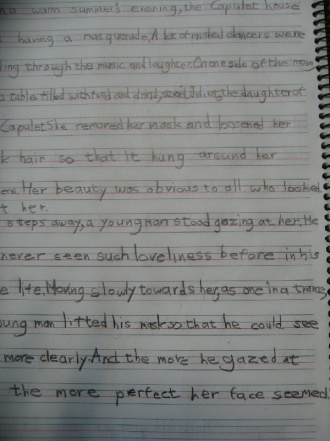 a warm summer's evening, the Capulet house
having a masquerade, A lot of masked dancers were
ling through the music and laughter. On one side of the room
a table filled with food and drink, stood Juliet, the daughter of
Capulet She removed her mask and loosened her
k hair so that it hung around her
Her beauty was obvious to all who looked
t her.
steps away, a young man stood gazing at her. He
never seen such loveliness before in his
e life. Moving slowly towards her, as one in a trance,
oung man lifted his mask so that he could see
more clearly. And the more he gazed at
the more perfect her face seemed.